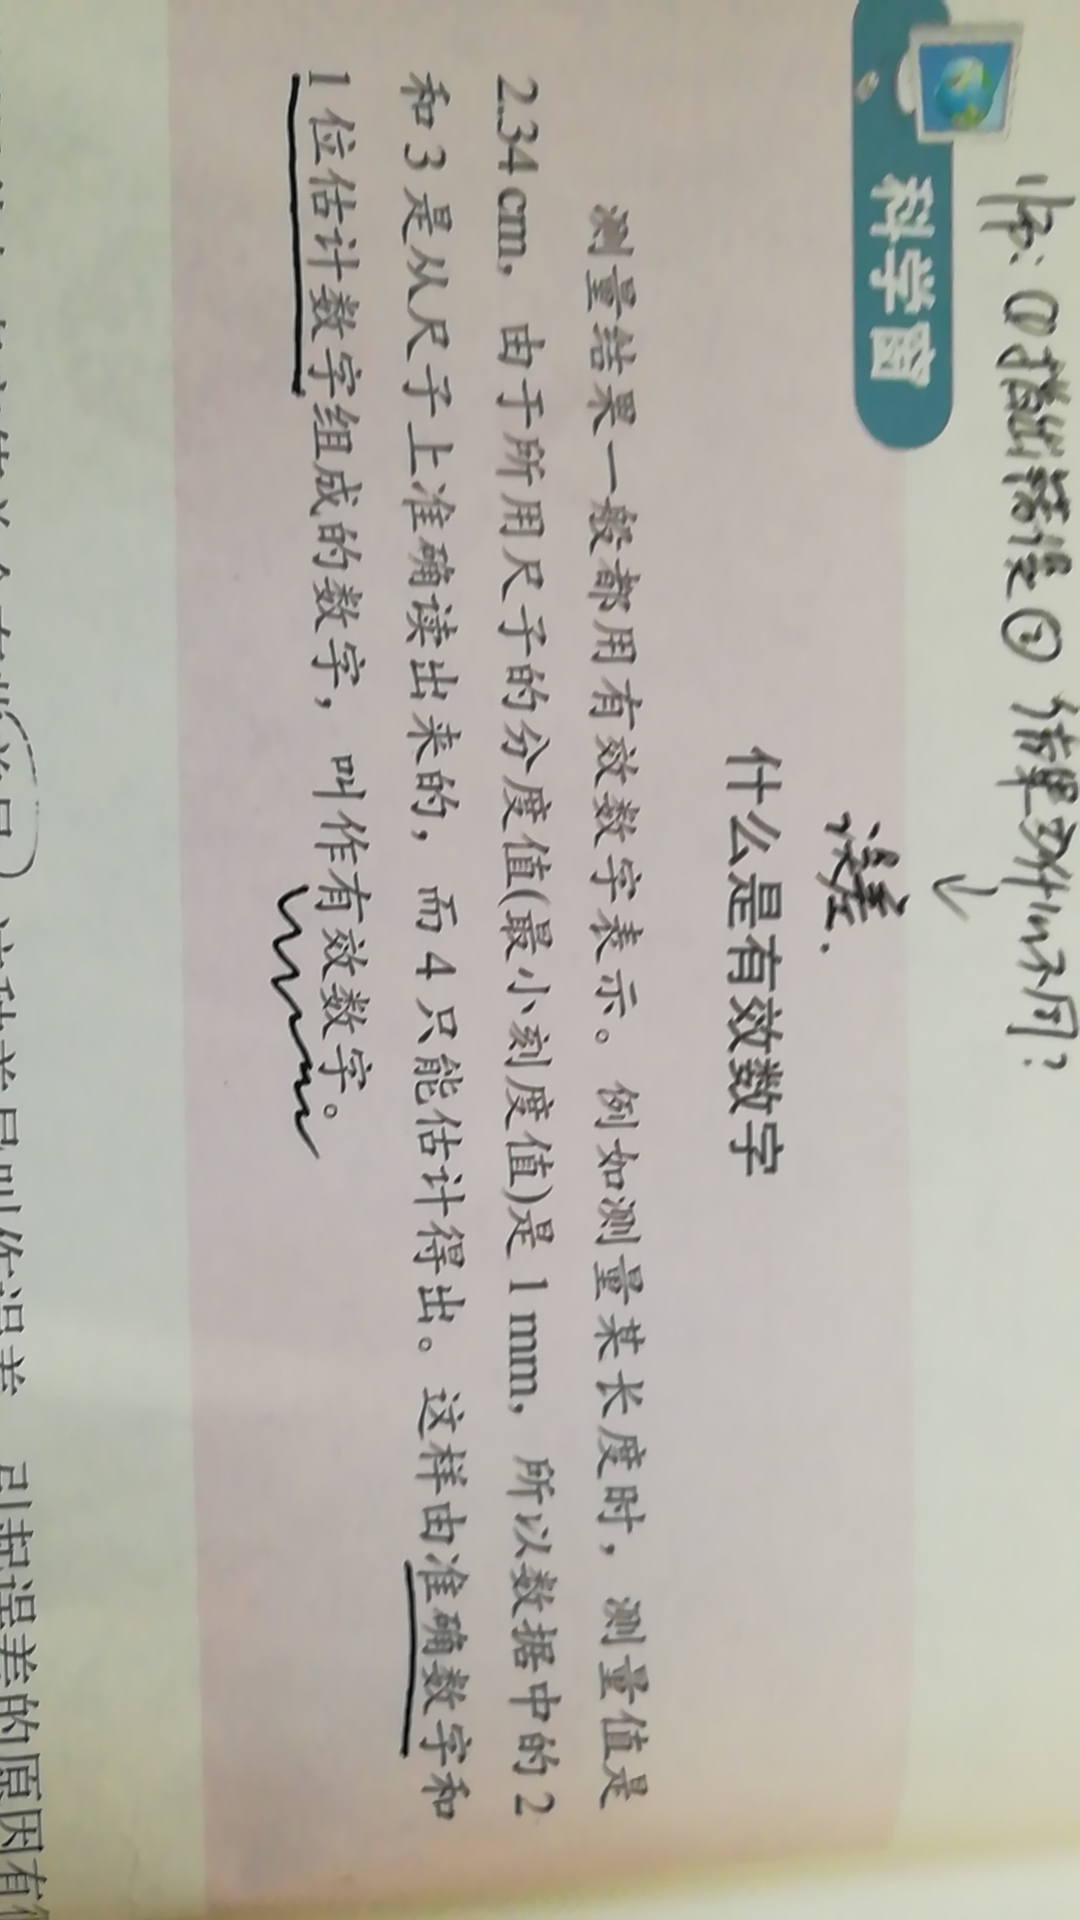 师：①指出错误② 结果为什么不同？
误差.
科学窗
什么是有效数字
测量结果一般都用有效数字表示。例如测量某长度时，测量值是
2.34 cm，由于所用尺子的分度值(最小刻度值)是 1 mm，所以数据中的 2
和 3 是从尺子上准确读出来的，而 4 只能估计得出。这样由准确数字和
1 位估计数字组成的数字，叫作有效数字。
差异叫作误差 引起误差的原因有